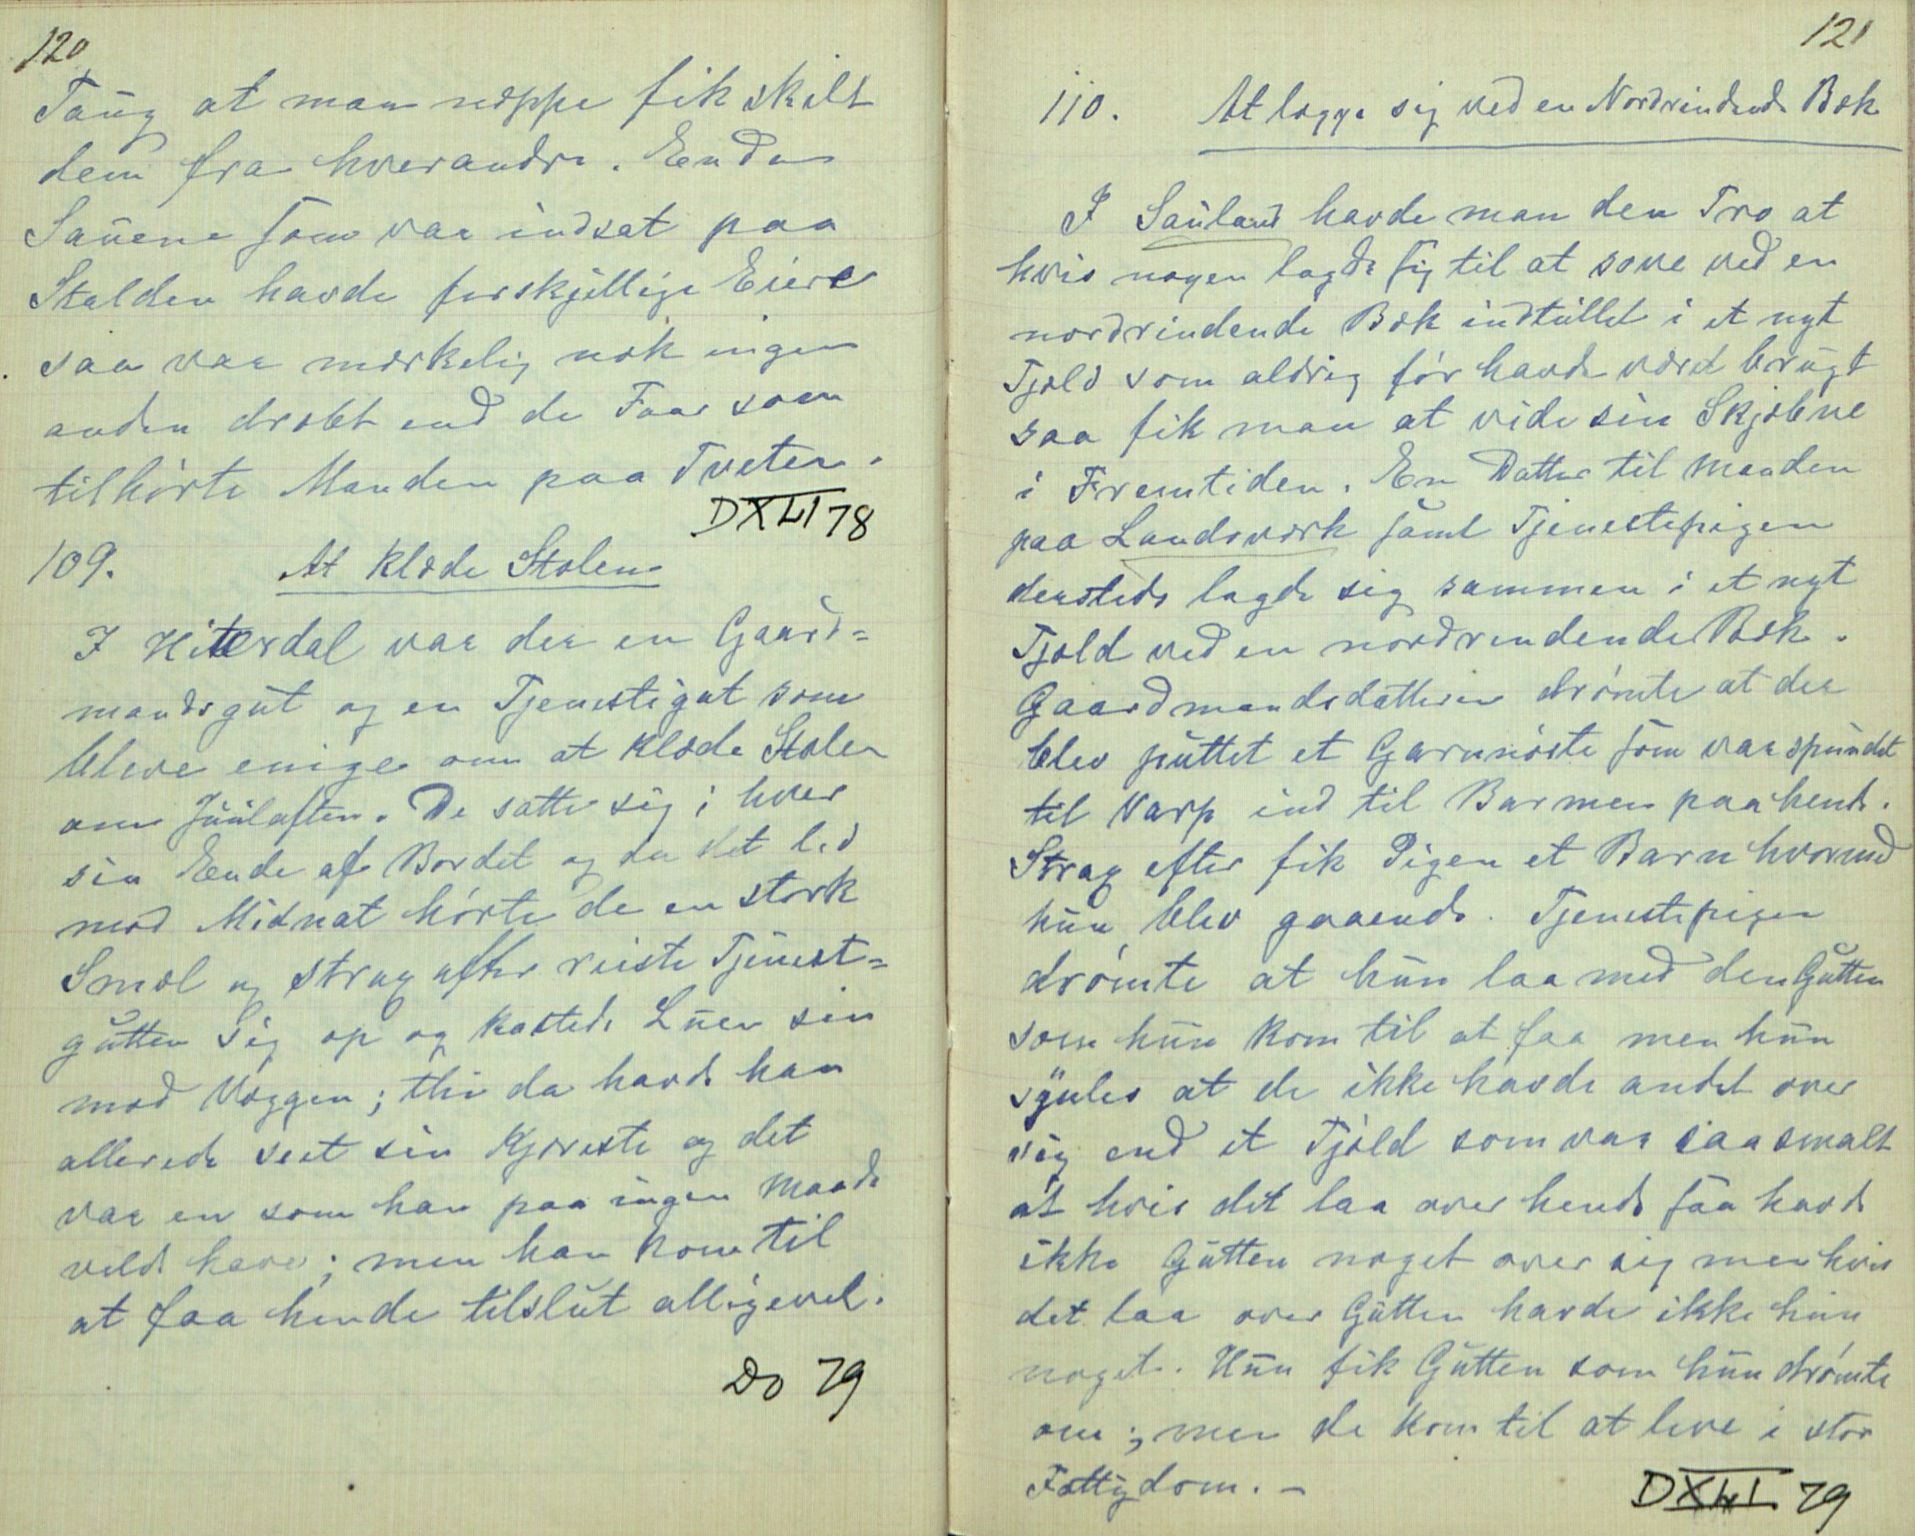 120
Taug at man næppe fik skilt
dem fra hverandre. Endda
Sauene som var indsat paa
Stalden havde forskjellige Eiere
saa var mærkelig nok ingen
anden dræbt end de Faar som
tilhørte Manden paa Tveten.
DXLI 78
109. At klæde Stolen
I Hiterdal var der en Gaard=
mandsgut og en Tjenestegut som
bleve enige om at klæde Stolen
om Juulaften. De satte sig i hver
sin Ende af Bordet og da det led
mod Midnat hørte de en stærk
Smæl og strax efter reiste Tjenest=
gutten sig op og kastede Luen sin
mod Væggen; thi da havde han
allerede seet sin Kjæreste og det
var en som han paa ingen Maade
vilde have; men han kom til
at faa hende tilslut alligevel.
Do 79
121
110. At lægge sig ved en Nordrindende Bæk
I Sauland havde man den Tro at
hvis nogen lagde sig til at sove ved en
nordrindende Bæk indtullet i et nyt
Tjæld som aldrig før havde været brugt
saa fik man at vide sin Skjæbne
i Fremtiden. En Datter til Manden
paa Landsværk samt Tjenestepigen
dersteds lagde sig sammen i et nyt
Tjæld ved en nordrendende Bæk.
Gaardmandsdatteren drømte at der
blev puttet et Garnnøste som var spundet
til Varp ind til Barmen paa hende.
Strax efter fik Pigen et Barn hvormed
hun blev gaaende. Tjenestepigen
drømte at hun laa med den Gutten
som hun kom til at faa men hun
syntes at de ikke havde andet over
sig end et Tjæld som var saa smalt
at hvis det laa over hende saa havde
ikke Gutten noget over sig men hvis
det laa over Gutten havde ikke hun
noget. Hun fik Gutten som hun drømte
om; men de kom til at leve i stor
Fattigdom. –
DXLI 79